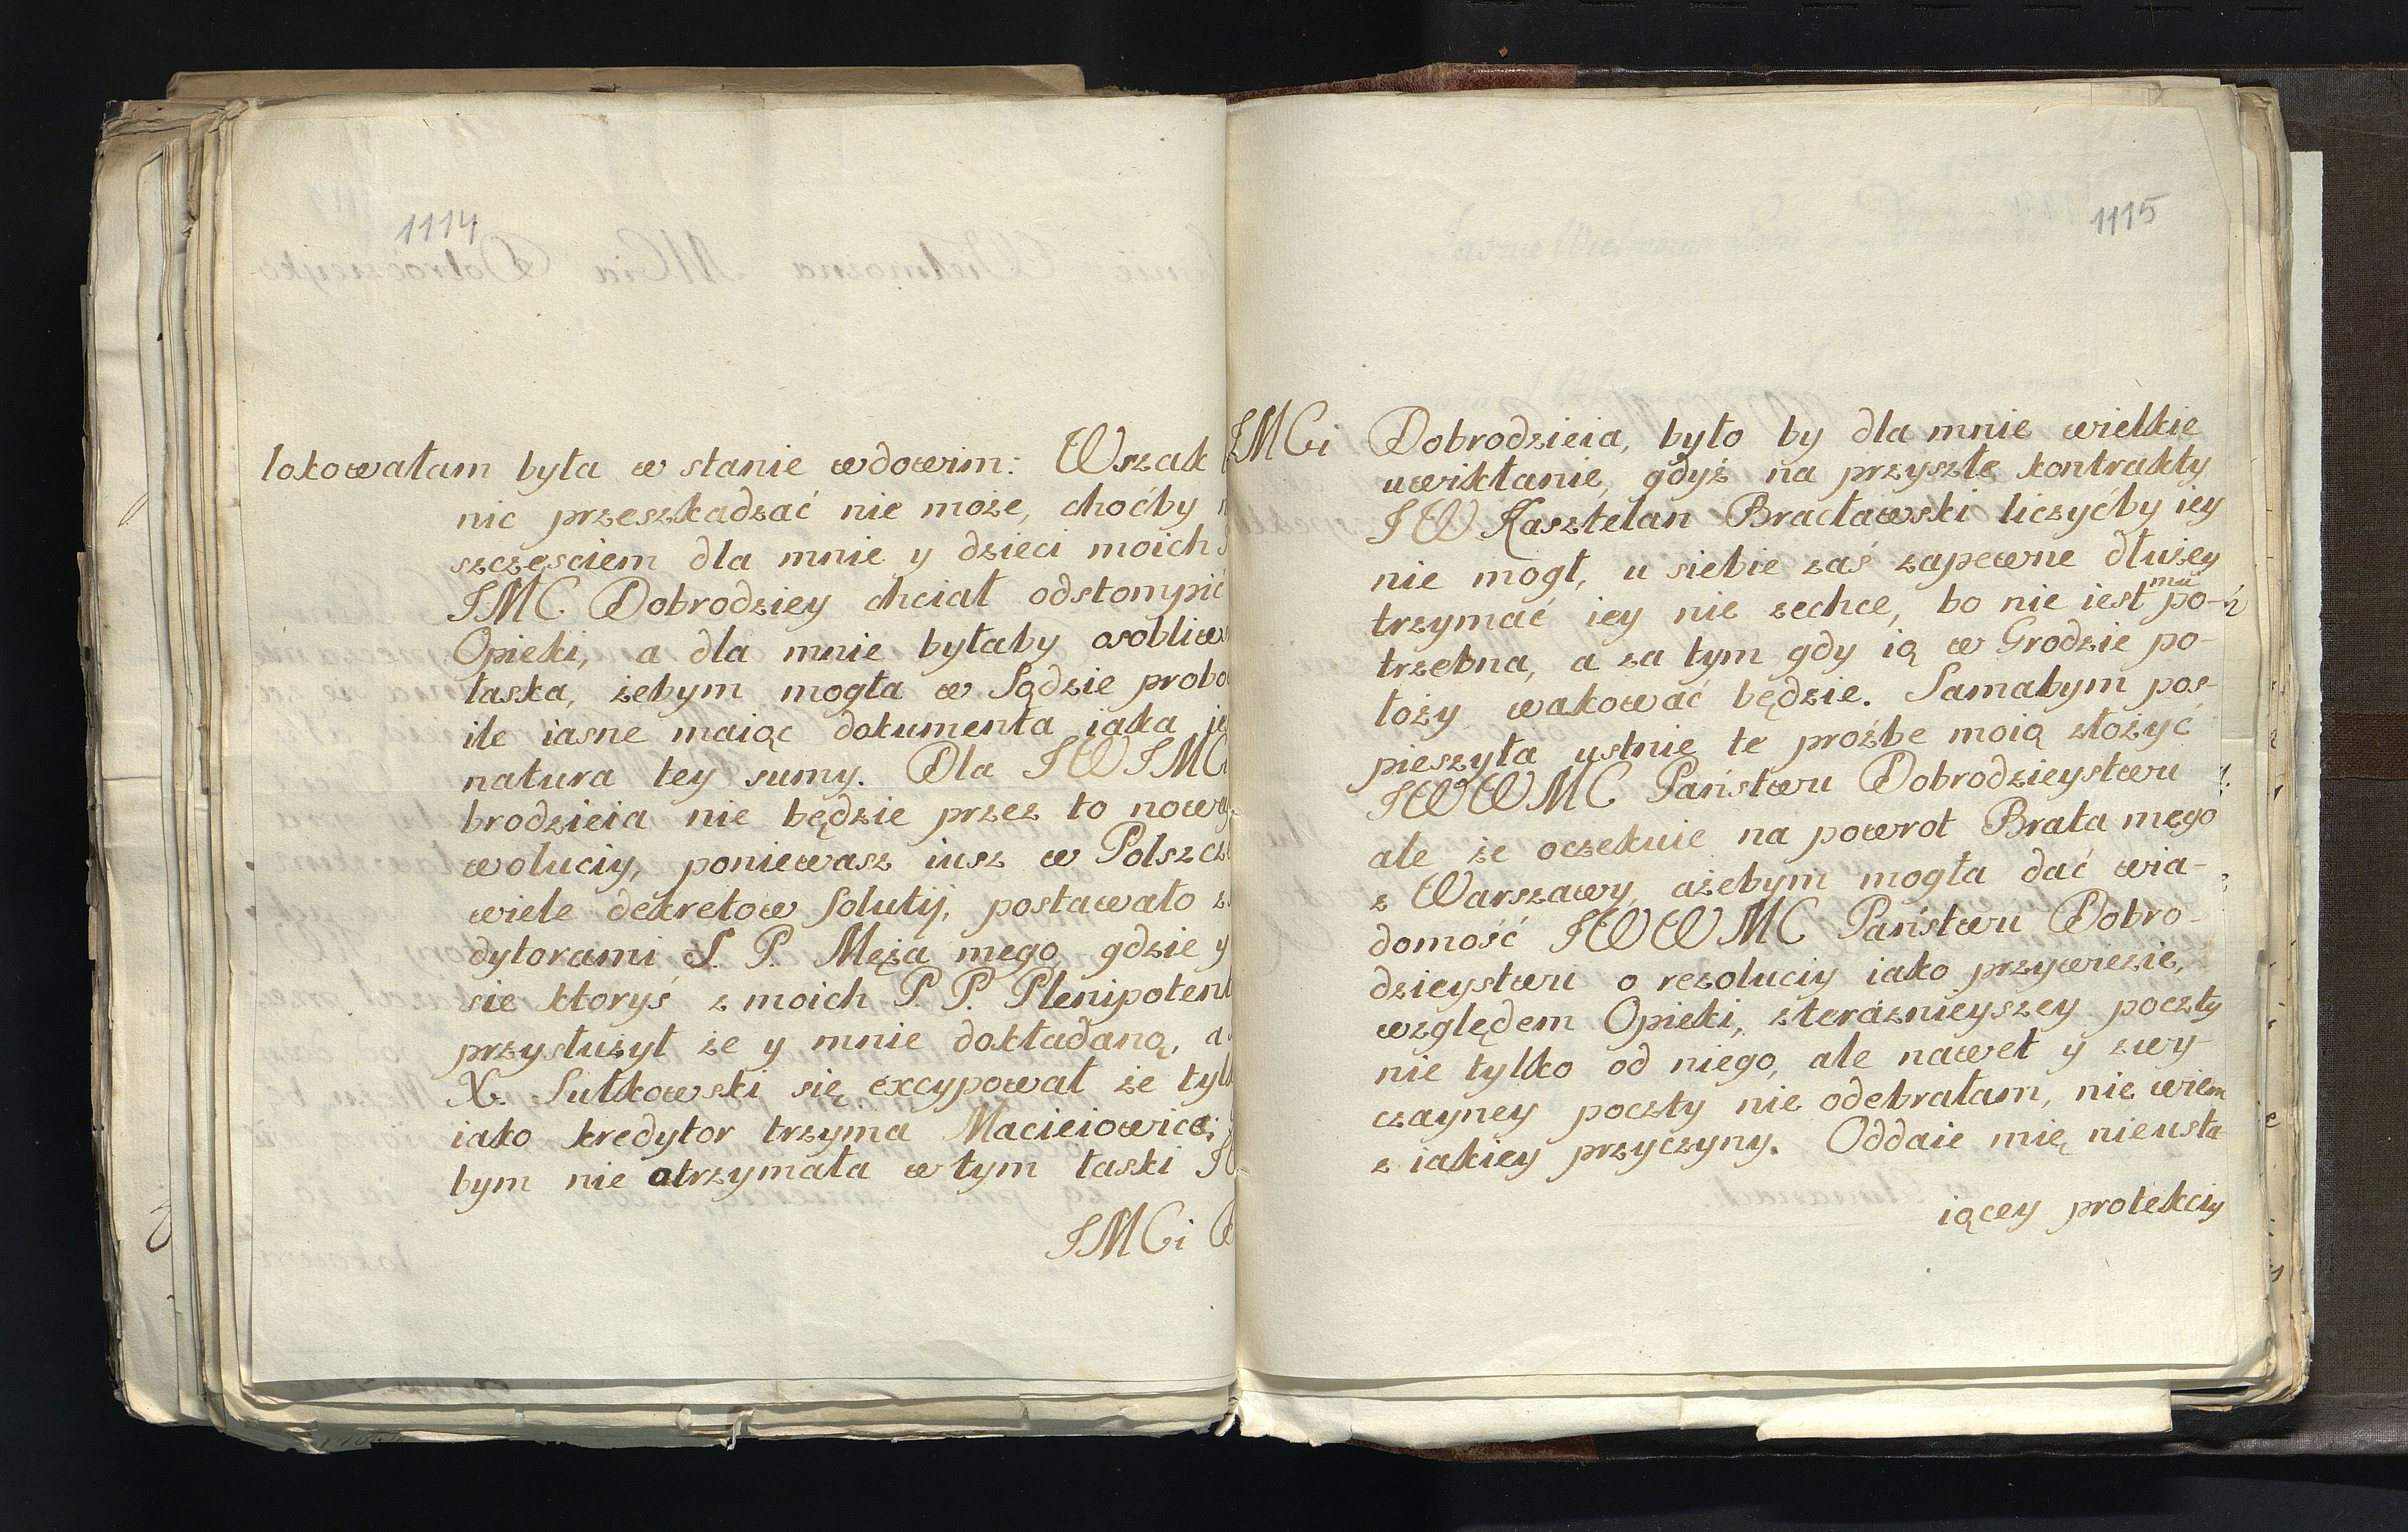 1114
lokowałam była w stanie wdowim: Wszak
nic przeszkadzać nie może, choćby
szczęsciem dla mnie y dzieci moich
JMC Dobrodziey chciał odstompić
Opieki, a dla mnie byłaby osobliw
łaska, żebym mogła w Sądzie probo
ile iasne maiąc dokumenta iaka ie
natura tey sumy. Dla JWJMC
brodzieia nie będzie przez to nowy
woluciy, poniewasz iusz w Polszcz
wiele dekretow Solutij, postawało z
dytorami S. P. Męża mego, gdzie y
sie ktoryś z moich P. P. Plenipotent
przysłużył że y mnie dokładaną, a
X. Sułkowski się excypował że tylk
iako kredytor trzyma Macieiowice;
bym nie otrzymała w tym łaski J
JMCi
1115
JMCi Dobrodzieia, było by dla mnie wielkie
uwikłanie, gdyż na przyszłe kontrakty
JW Kasztelan Bracławski liczyćby iey
nie mogł, u siebie zaś zapewne dłużey
trzymać iey nie zechce, bo nie iest mu po-
trzebna, a za tym gdy ią w Grodzie po-
łoży wakować będzie. Samabym pos-
pieszyła ustnie te proźbe moią złożyć
JWWMC Państwu Dobrodzieystwu
ale że oczekuie na powrot Brata mego
z Warszawy, ażebym mogła dać wia-
domość JWWMC Państwu Dobro-
dzieystwu o rezoluciy iako przywiezie,
względem Opieki, zterazńieyszey poczty
nie tylko od niego, ale nawet y zwy-
czayney poczty nie odebrałam, nie wiem
z iakiey przyczyny. Oddaie mię nieusta
iącey protekciy